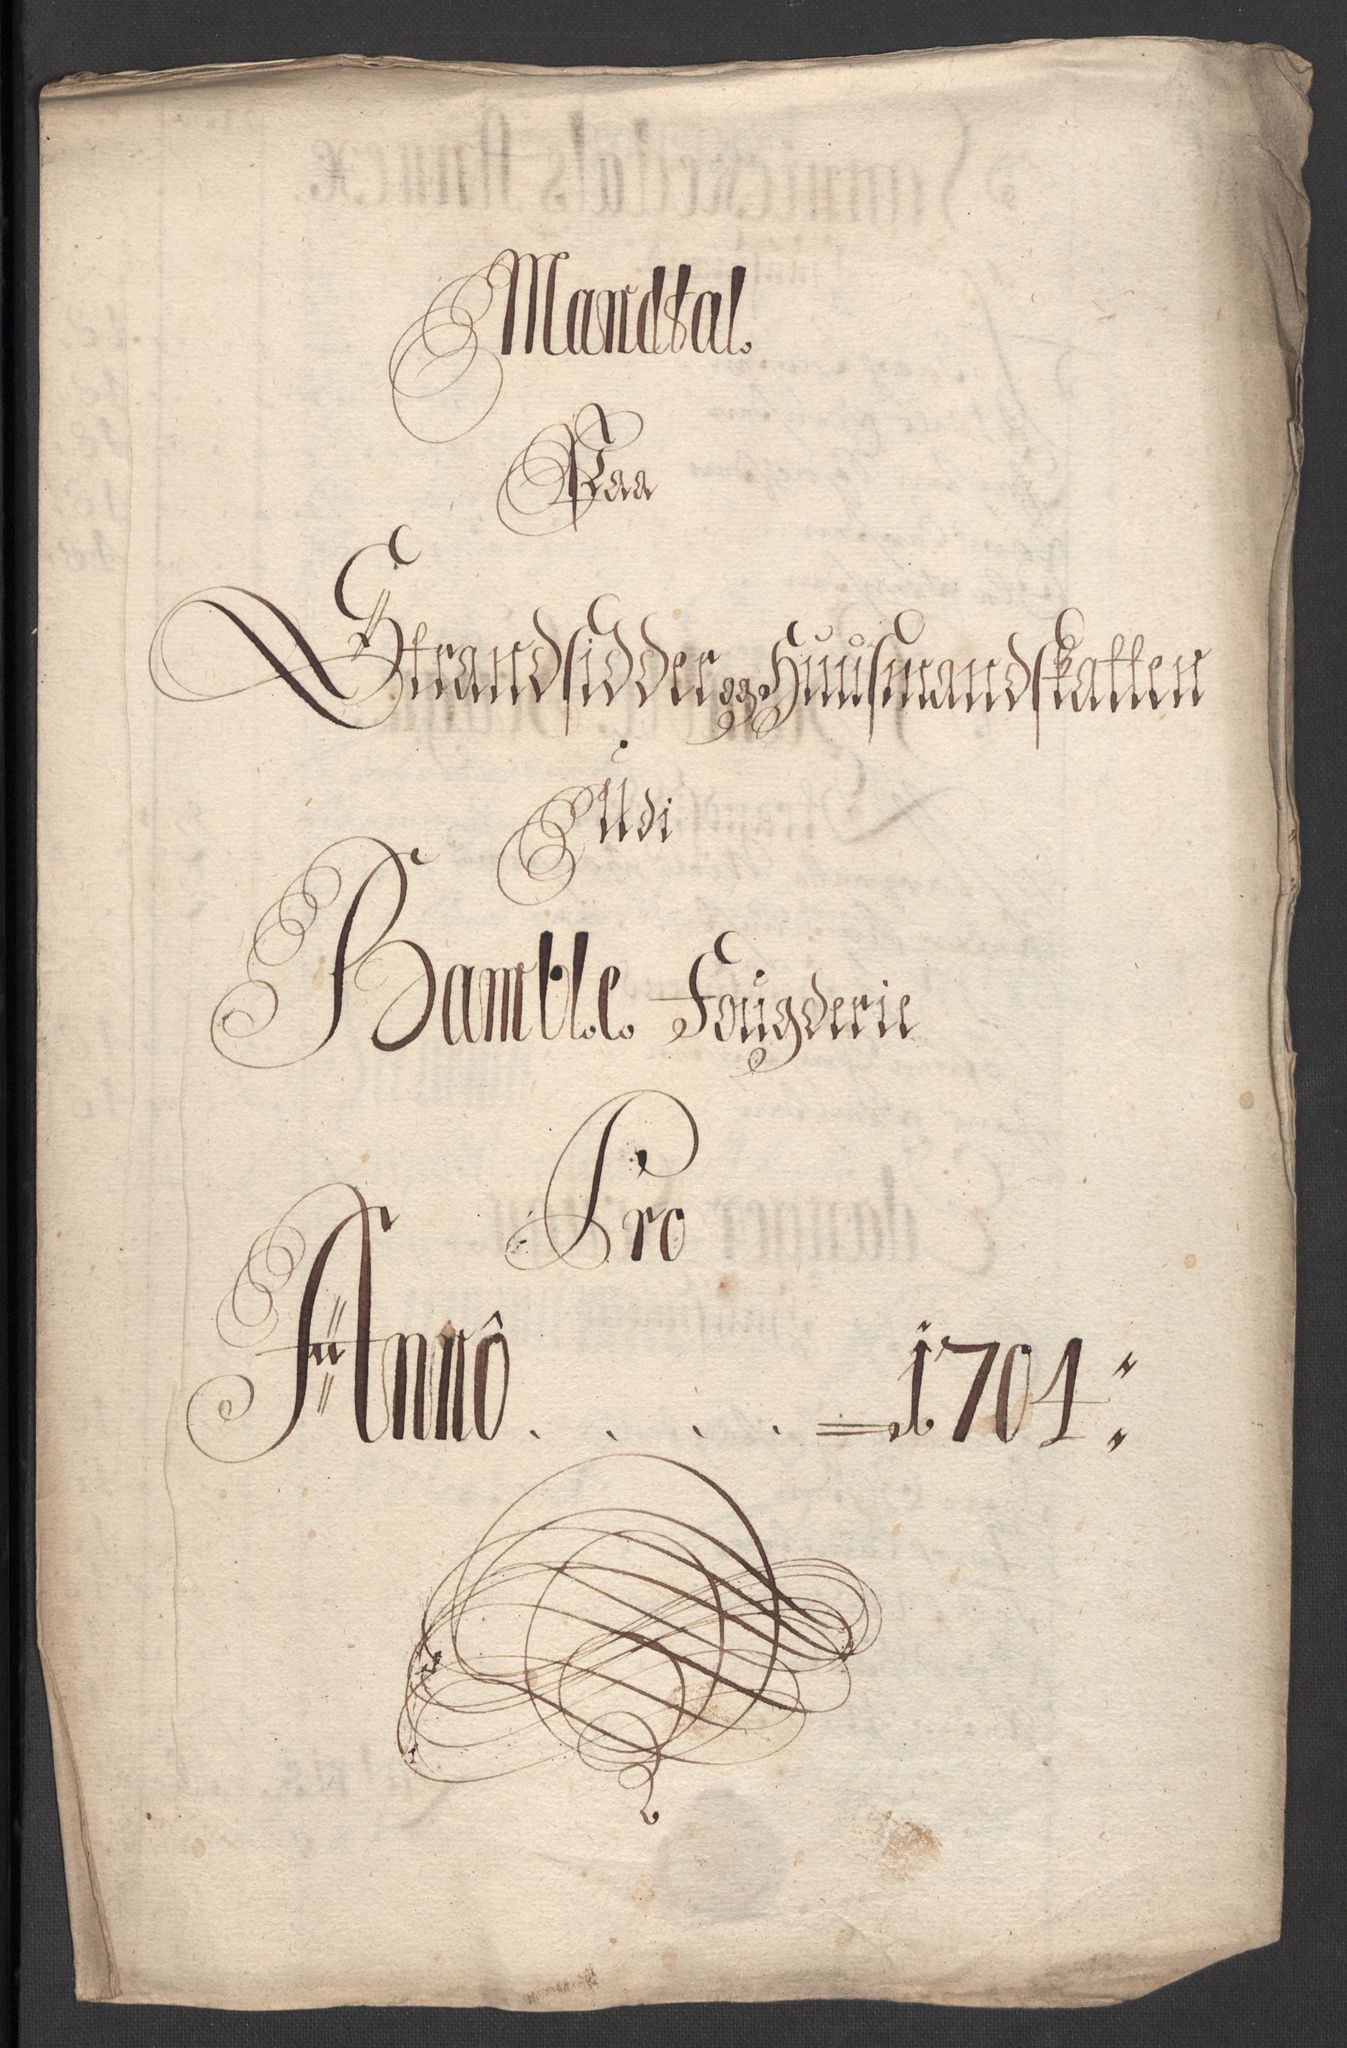 Mandtal.
Paa
Strandsidder og Huusmandskatten
Udi
Bamble. Fougderie
Pro
Anno . . . . = 1704: